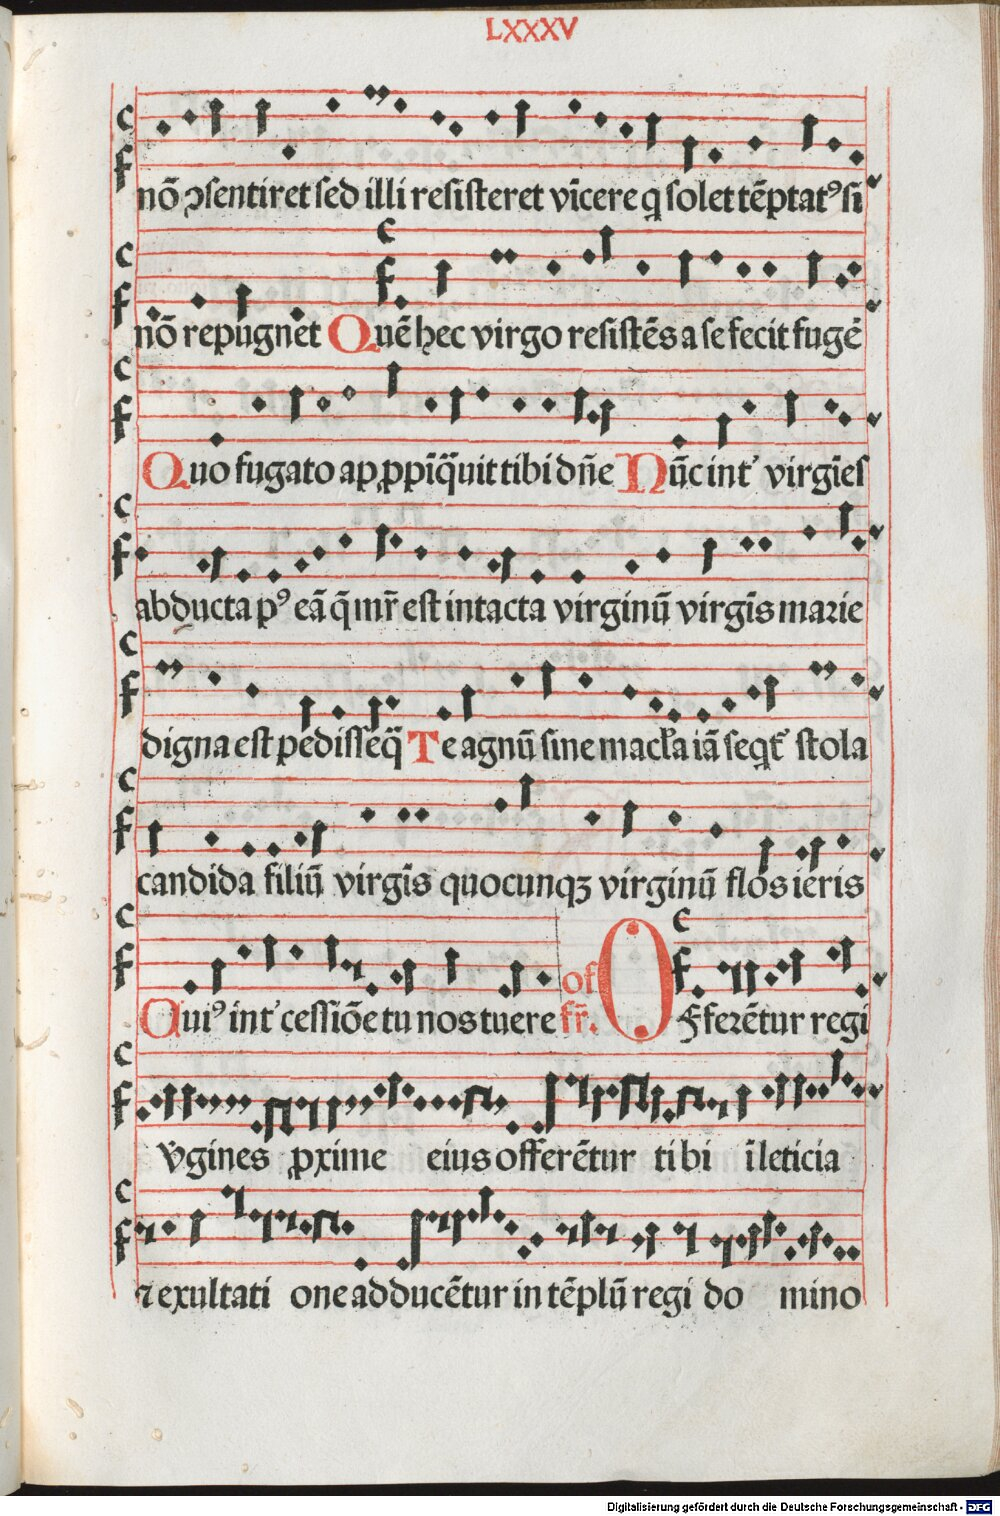 LXXXV
nō ɔsentiret sed illi resisteret vīcere q̄ solet tēptatꝰ si
nō repugnet Quē hec virgo resistēs a se fecit fugē
Quo fugato ap̱ꝓpīq̄uit tibi dn̄e Nūc int' virgīes
abducta pꝰ eā q̄ mr̄ est intacta virginū virgīs marie
digna est pedisseq̄ Te agnū sine macl̄a iā seqt̄' stola
candida filiū virgīs quocunqꝫ virginū flos ieris
Quiꝰ int' cessiōe tu nos tuere of fr̄. Offerētur regi
v̄gines ꝓxime eius offerētur tibi ī leticia
⁊ exultati one adducētur in tēplū regi do mino
Digitalisierung gefördert durch die Deutsche Forschungsgemeinschaft - DFG